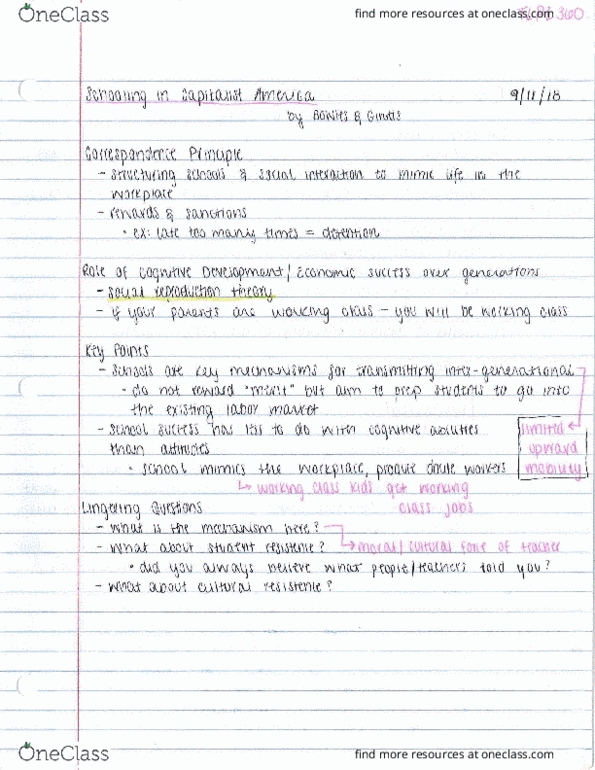 OneClass
find more resources at oneclass.com
360
Schooling in Capitalist America
9/11/18
by Bowles & Gintis
Correspondence Principle
- structuring schools & social interaction to mimic life in the
workplace
- rewards & sanctions
• ex: late too many times = detention
Role of Cognitive Development/Economic success over generations
- social reproduction theory
- if your parents are working class – you will be working class
Key Points
- schools are key mechanisms for transmitting inter-generational
• do not reward "merit" but aim to prep students to go into
the existing labor market
- school success has less to do with cognitive abilities
limited
upward
mobility
than attitudes
• school mimics the workplace, produce docile workers
↳ working class kids get working
class jobs
Lingering Questions
- what is the mechanism here?
- what about student resistence?
→ moral/cultural force of teacher
• did you always believe what people/teachers told you?
- what about cultural resistence?
OneClass
find more resources at oneclass.com